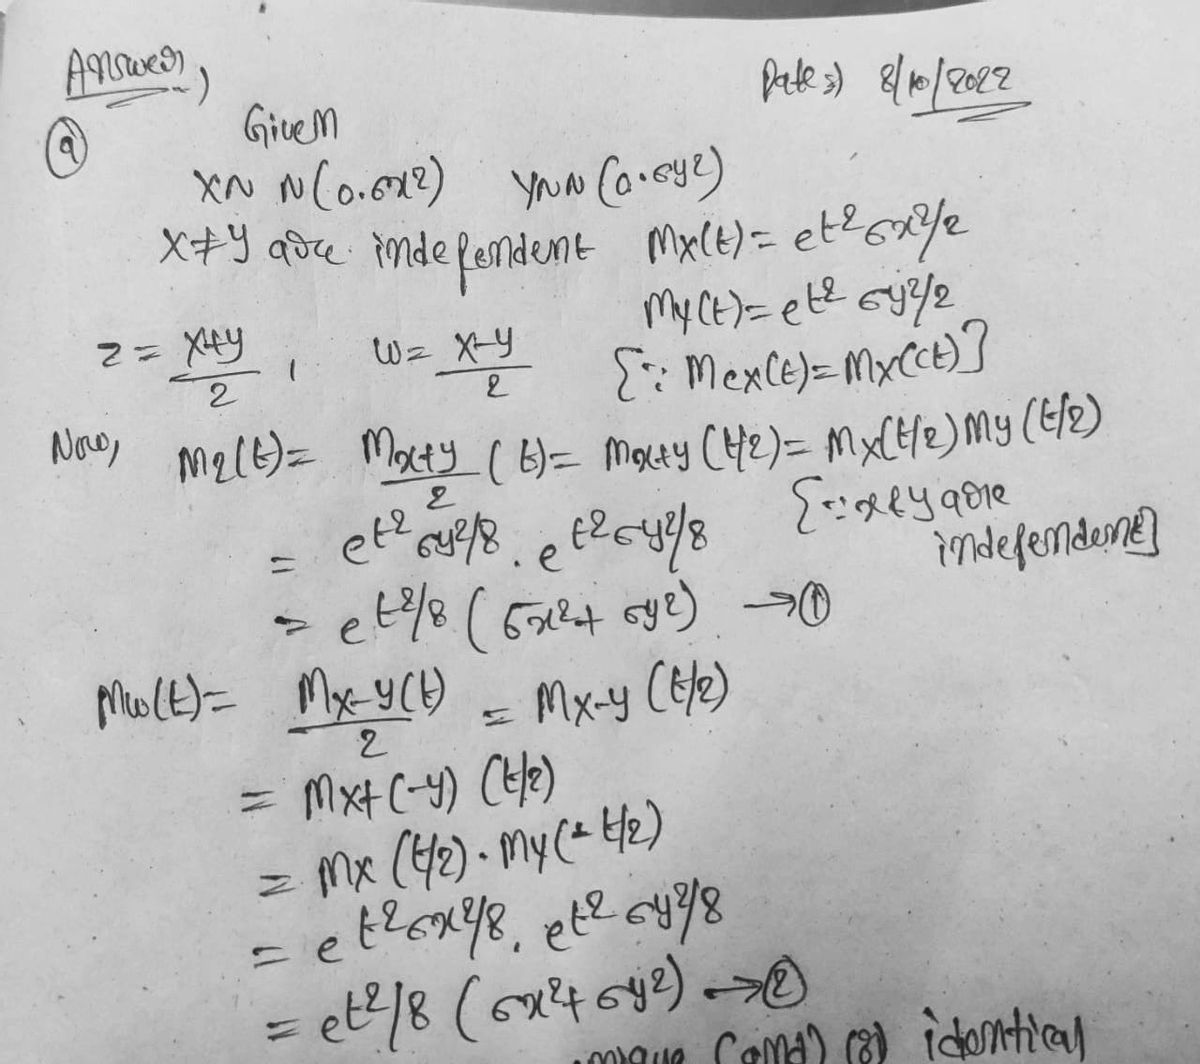 Answer,
Date :) 8/10/2022
(a) Given
X ~ N(0, σx²) Y ~ N(0, σy²)
X & Y are independent Mx(t) = e^t²σx²/2
My(t) = e^t²σy²/2
z = (x+y)/2 , w = (x-y)/2 {∵ Mcx(t) = Mx(ct)}
Now, Mz(t) = M(x+y)/2 (t) = Mx+y (t/2) = Mx(t/2) My(t/2)
= e^t²σy²/8 . e^t²σy²/8 {∵ x & y are
independent}
= e^t²/8 (σx² + σy²) → ①
Mw(t) = M(x-y)/2 (t) = Mx-y (t/2)
= Mx+(-y) (t/2)
= Mx (t/2) . My (-t/2)
= e^t²σx²/8 . e^t²σy²/8
= e^t²/8 (σx² + σy²) → ②
identical